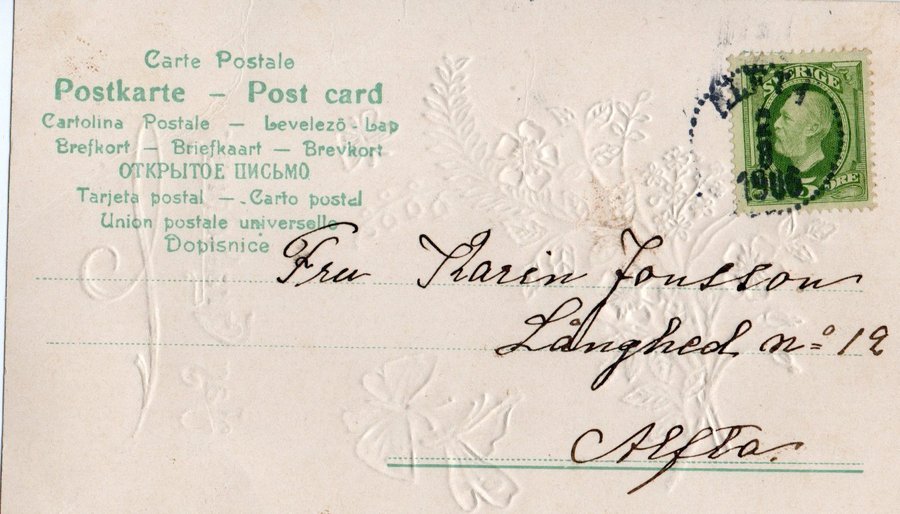 Carte Postale
Postkarte – Post card
Cartolina Postale – Levelező-Lap
Brefkort – Briefkaart – Brevkort
ОТКРЫТОЕ ПИСЬМО
Tarjeta postal – Carto postal
Union postale universelle
Dopisnice
SVERIGE
5 ÖRE
8
1906
Fru Karin Jonsson
Långhed no 12
Alfta.